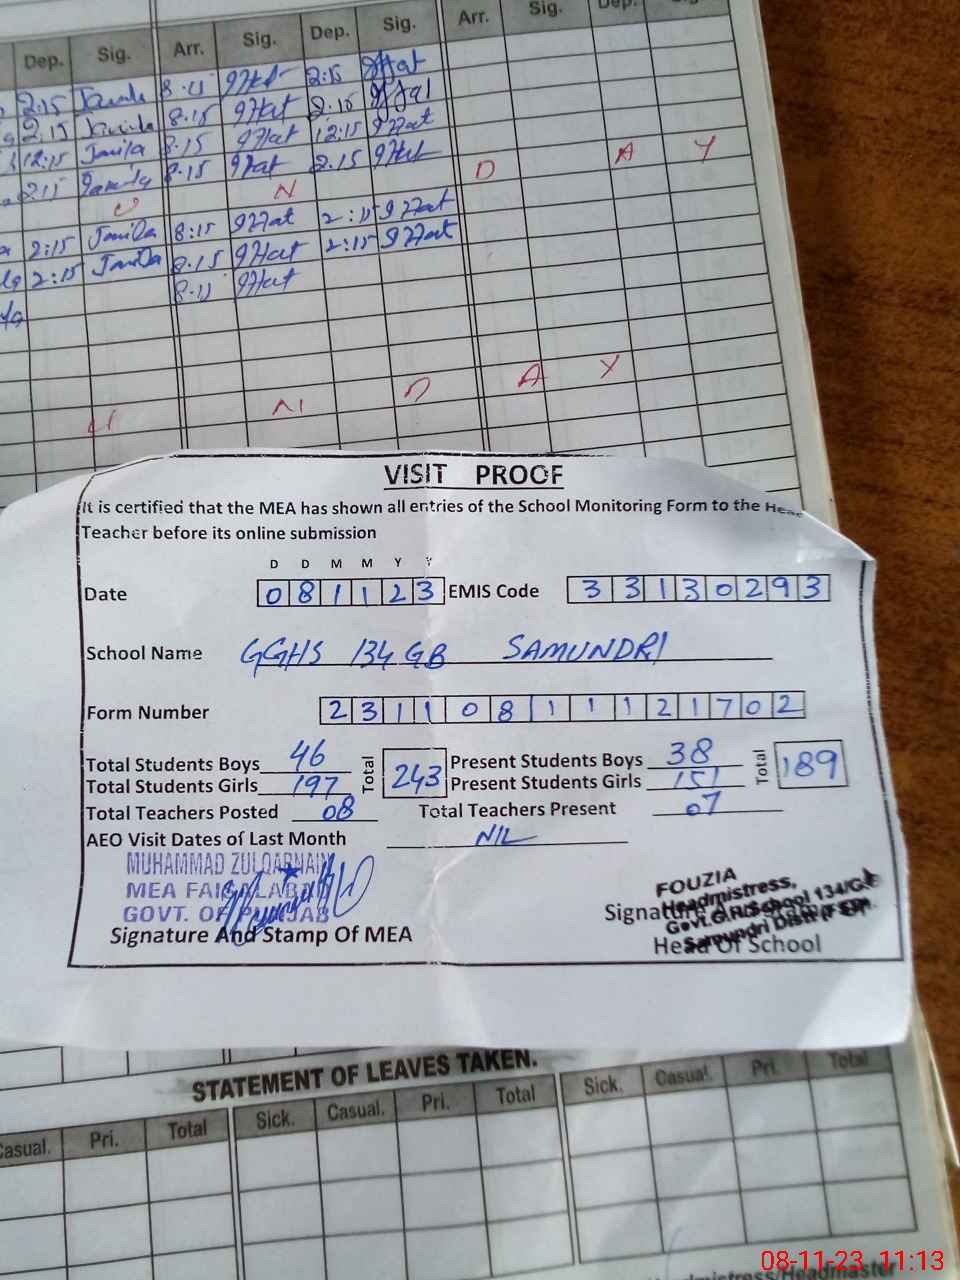 Dep. Sig. Arr. Sig. Dep. Sig. Arr. Sig. Dep. Sig.
2:15 8:15 2:15
2:15 Jamila 8:15 2:15
12:15 Jamila 8:15 12:15
2:15 8:15 2:15
N D A Y
2:15 Jamila 8:15 2:15
2:15 Jamila 8:15 2:15
8:15
N D A Y
VISIT PROOF
It is certified that the MEA has shown all entries of the School Monitoring Form to the Head
Teacher before its online submission
D D M M Y Y
Date 081123 EMIS Code 33130293
School Name GGHS 134 GB SAMUNDRI
Form Number 23110811121702
Total Students Boys 46 Total 243 Present Students Boys 38 Total 189
Total Students Girls 197 Present Students Girls 151
Total Teachers Posted 08 Total Teachers Present 07
AEO Visit Dates of Last Month NIL
MUHAMMAD ZULQARNAIN
MEA FAISALABAD
GOVT. OF PUNJAB
Signature And Stamp Of MEA
FOUZIA
Headmistress,
Govt. G.H/School 134/G.B
Samundri Distt:
Signature
Head Of School
STATEMENT OF LEAVES TAKEN.
Casual. Pri. Total Sick. Casual. Pri. Total Sick. Casual. Pri. Total
08-11-23 11:13
/Headmaster